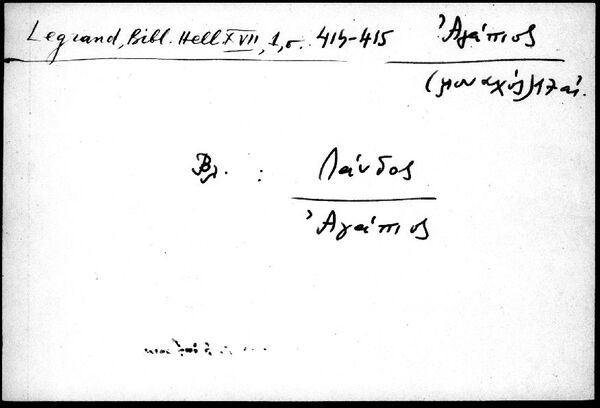 Legrand, Bibl. Hell. XVII, 1, σ. 414-415
Ἀγάπιος
(μοναχός) 17 αἰ.
Βλ. : Λάνδος
Ἀγάπιος